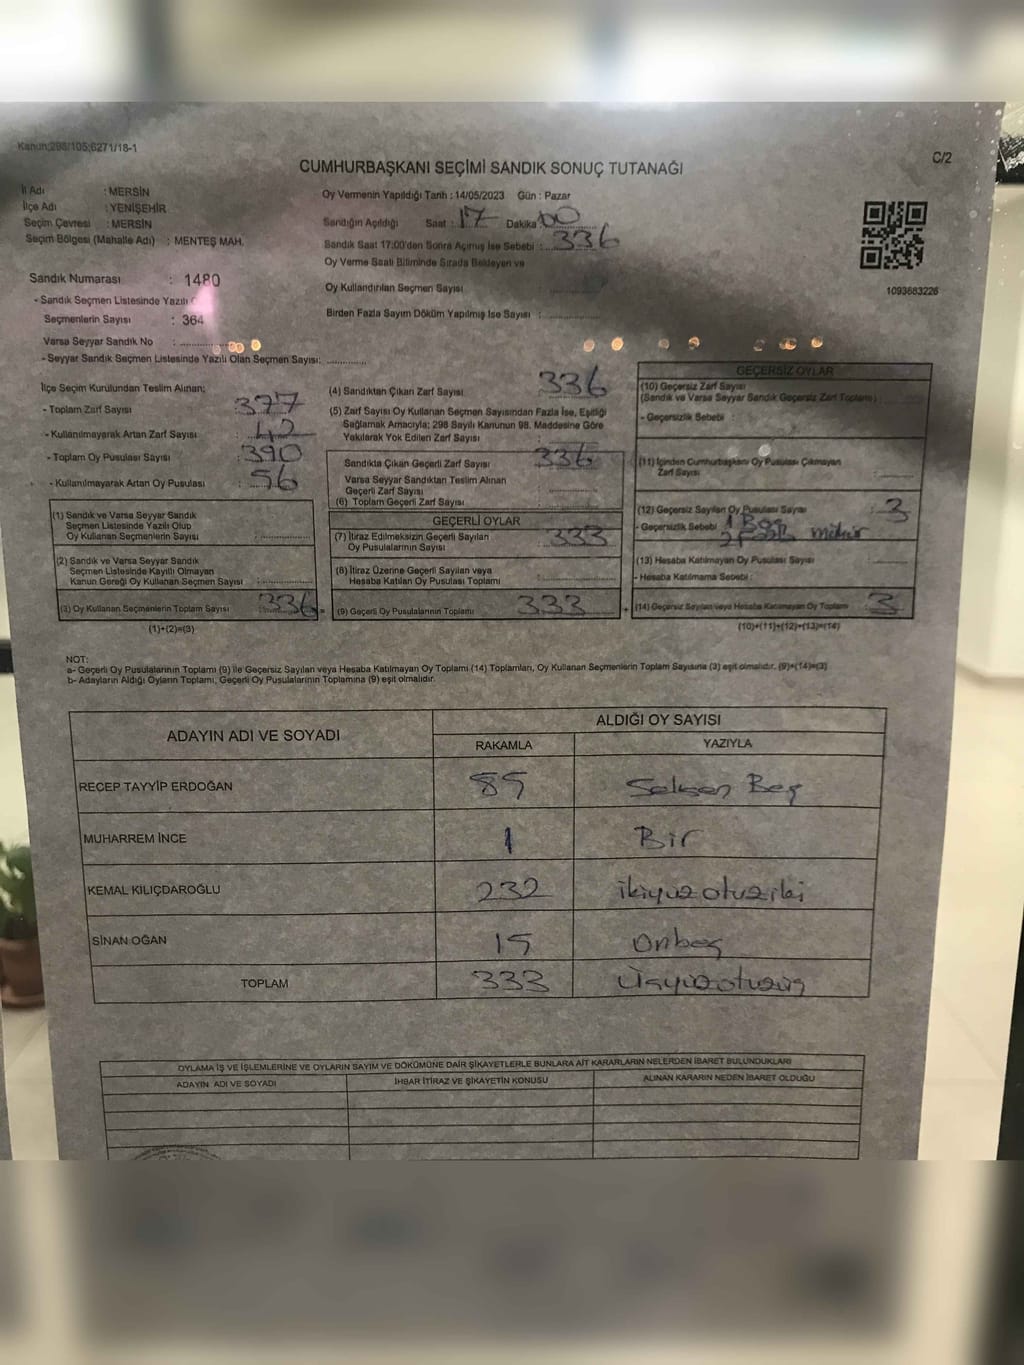 Kanun;298/105;6271/18-1
C/2
CUMHURBAŞKANI SEÇİMİ SANDIK SONUÇ TUTANAĞI
İl Adı : MERSİN
İlçe Adı : YENİŞEHİR
Seçim Çevresi : MERSİN
Seçim Bölgesi (Mahalle Adı) : MENTEŞ MAH.
Oy Vermenin Yapıldığı Tarih : 14/05/2023 Gün : Pazar
Sandığın Açıldığı Saat : 17 Dakika 00
Sandık Saat 17:00'den Sonra Açılmış İse Sebebi : 336
Oy Verme Saati Bitiminde Sırada Bekleyen ve
Oy Kullandırılan Seçmen Sayısı
Birden Fazla Sayım Döküm Yapılmış İse Sayısı :
1093683226
Sandık Numarası : 1480
- Sandık Seçmen Listesinde Yazılı
Seçmenlerin Sayısı : 364
Varsa Seyyar Sandık No :
- Seyyar Sandık Seçmen Listesinde Yazılı Olan Seçmen Sayısı:
İlçe Seçim Kurulundan Teslim Alınan:
- Toplam Zarf Sayısı : 377
- Kullanılmayarak Artan Zarf Sayısı : 42
- Toplam Oy Pusulası Sayısı : 390
- Kullanılmayarak Artan Oy Pusulası : 56
(1) Sandık ve Varsa Seyyar Sandık
Seçmen Listesinde Yazılı Olup
Oy Kullanan Seçmenlerin Sayısı :
(2) Sandık ve Varsa Seyyar Sandık
Seçmen Listesinde Kayıtlı Olmayan
Kanun Gereği Oy Kullanan Seçmen Sayısı :
(3) Oy Kullanan Seçmenlerin Toplam Sayısı : 336 =
(1)+(2)=(3)
(4) Sandıktan Çıkan Zarf Sayısı : 336
(5) Zarf Sayısı Oy Kullanan Seçmen Sayısından Fazla İse, Eşitliği
Sağlamak Amacıyla; 298 Sayılı Kanunun 98. Maddesine Göre
Yakılarak Yok Edilen Zarf Sayısı :
Sandıkta Çıkan Geçerli Zarf Sayısı : 336
Varsa Seyyar Sandıktan Teslim Alınan
Geçerli Zarf Sayısı :
(6) Toplam Geçerli Zarf Sayısı :
GEÇERLİ OYLAR
(7) İtiraz Edilmeksizin Geçerli Sayılan
Oy Pusulalarının Sayısı : 333
(8) İtiraz Üzerine Geçerli Sayılan veya
Hesaba Katılan Oy Pusulası Toplamı :
(9) Geçerli Oy Pusulalarının Toplamı : 333 +
GEÇERSİZ OYLAR
(10) Geçersiz Zarf Sayısı
(Sandık ve Varsa Seyyar Sandık Geçersiz Zarf Toplamı) :
- Geçersizlik Sebebi :
(11) İçinden Cumhurbaşkanı Oy Pusulası Çıkmayan
Zarf Sayısı :
(12) Geçersiz Sayılan Oy Pusulası Sayısı : 3
- Geçersizlik Sebebi : 1 Boş
mühür
(13) Hesaba Katılmayan Oy Pusulası Sayısı :
- Hesaba Katılmama Sebebi :
(14) Geçersiz Sayılan veya Hesaba Katılmayan Oy Toplamı : 3
(10)+(11)+(12)+(13)=(14)
NOT:
a- Geçerli Oy Pusulalarının Toplamı (9) İle Geçersiz Sayılan veya Hesaba Katılmayan Oy Toplamı (14) Toplamları, Oy Kullanan Seçmenlerin Toplam Sayısına (3) eşit olmalıdır. (9)+(14)=(3)
b- Adayların Aldığı Oyların Toplamı, Geçerli Oy Pusulalarının Toplamına (9) eşit olmalıdır.
ADAYIN ADI VE SOYADI
ALDIĞI OY SAYISI
RAKAMLA YAZIYLA
RECEP TAYYİP ERDOĞAN 85 Seksen Beş
MUHARREM İNCE 1 Bir
KEMAL KILIÇDAROĞLU 232 ikiyüz otuz iki
SİNAN OĞAN 15 Onbeş
TOPLAM 333 Üçyüzotuzüç
OYLAMA İŞ VE İŞLEMLERİNE VE OYLARIN SAYIM VE DÖKÜMÜNE DAİR ŞİKAYETLERLE BUNLARA AİT KARARLARIN NELERDEN İBARET BULUNDUKLARI
ADAYIN ADI VE SOYADI İHBAR İTİRAZ VE ŞİKAYETİN KONUSU ALINAN KARARIN NEDEN İBARET OLDUĞU